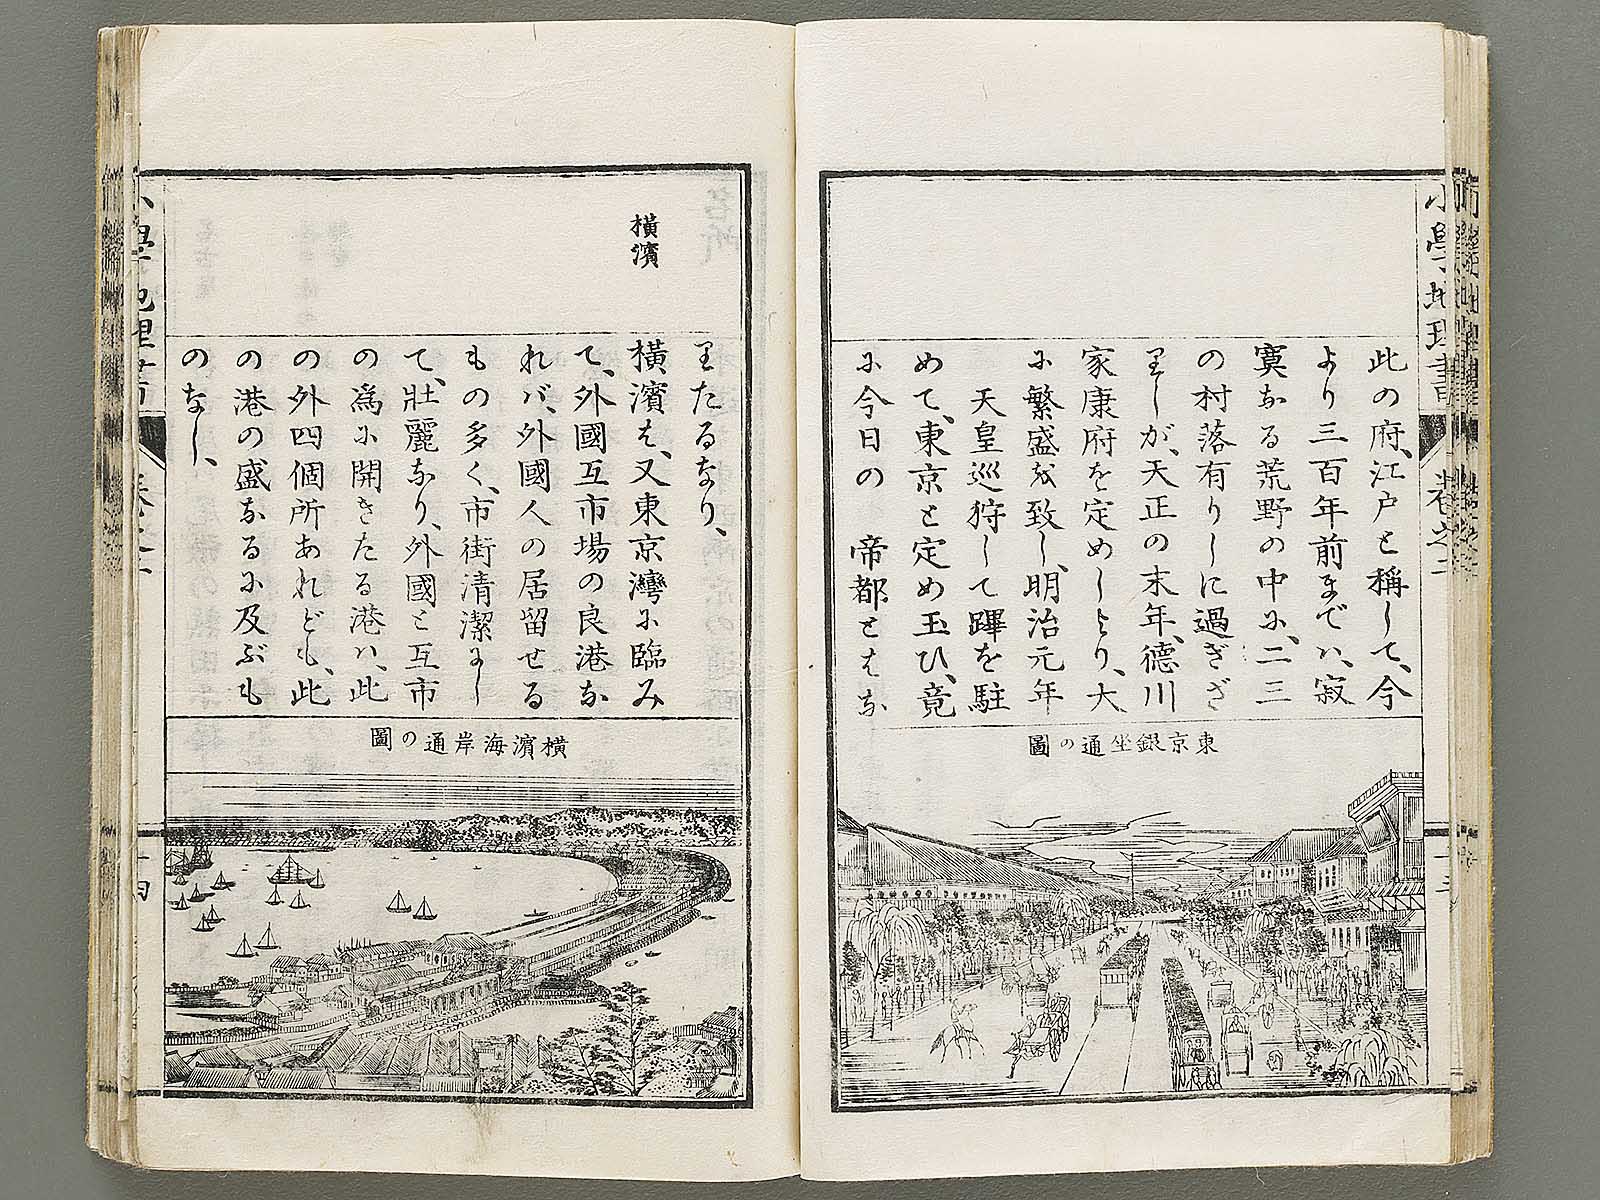 小學地理書
卷之二
十三
此の府、江戸と稱して、今
より三百年前までハ、寂
寞なる荒野の中に、二三
の村落有りしに過ぎざ
りしが、天正の末年、德川
家康府を定めしより、大
に繁盛を致し、明治元年
天皇巡狩して蹕を駐
めて、東京と定め玉ひ、竟
に今日の　帝都とはな
東京銀坐通の圖
りたるなり、
橫濱
橫濱は、又東京灣に臨み
て、外國互市場の良港な
れバ、外國人の居留せる
もの多く、市街清潔にし
て、壯麗なり、外國と互市
の爲に開きたる港ハ、此
の外四個所あれども、此
の港の盛なるに及ぶも
のなし、
橫濱海岸通の圖
小學地理書
十四